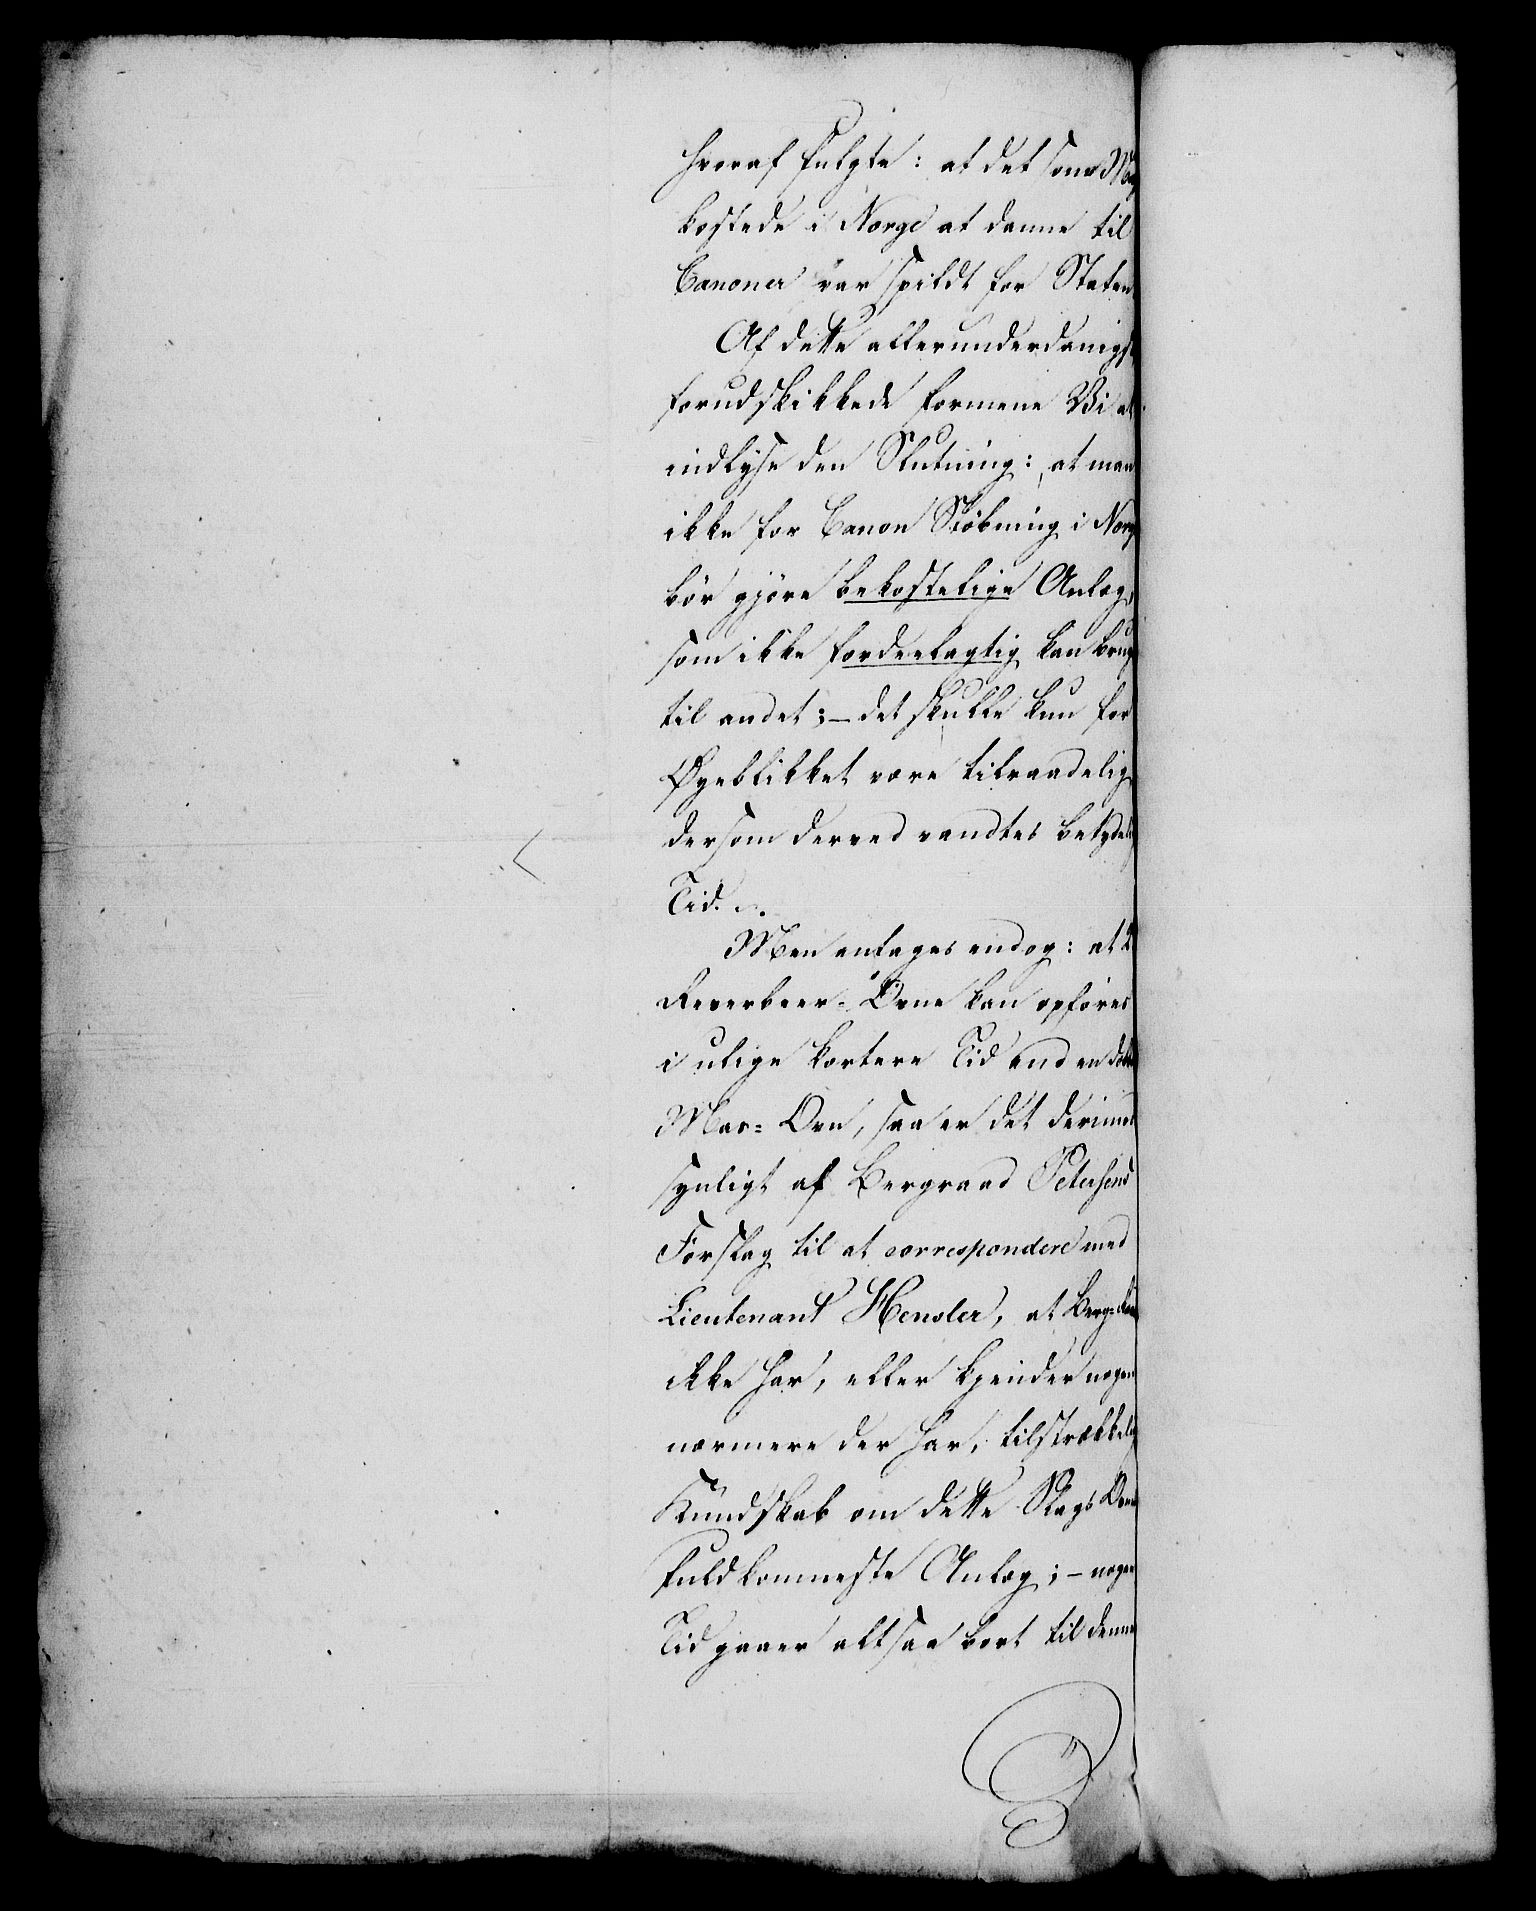 hvoraf fulgte: at det som M
kostede i Norge at danne til
Canoner var spildt for Staten
Af dette allerunderdanigst
forudskikkede formene Vi at
indlyse den Slutning: at man
ikke for Canon Støbning i Norge
bör gjöre bekostelige Anlæg,
som ikke fordeelagtig kan brug
til andet; - det skulle kun for
Øyeblikket være tilraadelig
dersom derved vandtes betydelig
Tid.
Men antages endog: at 2
Reverbeer-Ovne kan opföres
i ulige kortere Tid end en
Mas= Ovn, saa er det derimod
synligt af Bergraad Petersens
Forslag til at correspondere med
Lieutenant Hensler, at Berg-
ikke har, eller kjender nogen
nærmere der har, tilstrækkelig
Kundskab om dette Slags Ovne
fuldkomneste Anlæg; - nogen
Tid gaaer altsaa bort til denne